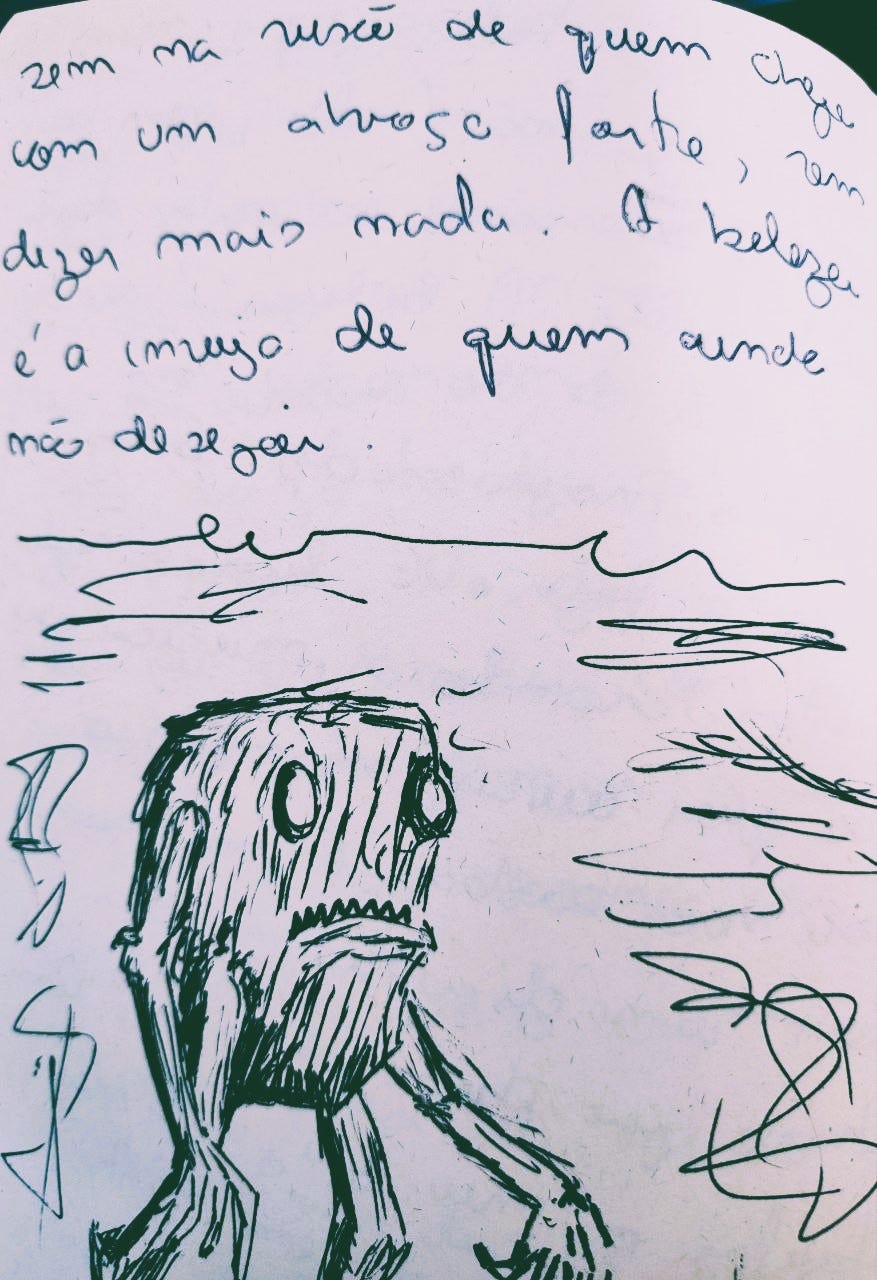 sem na de quem chega
com um abraço forte, sem
dizer mais nada. A beleza
é a inveja de quem ainda
não desejou.